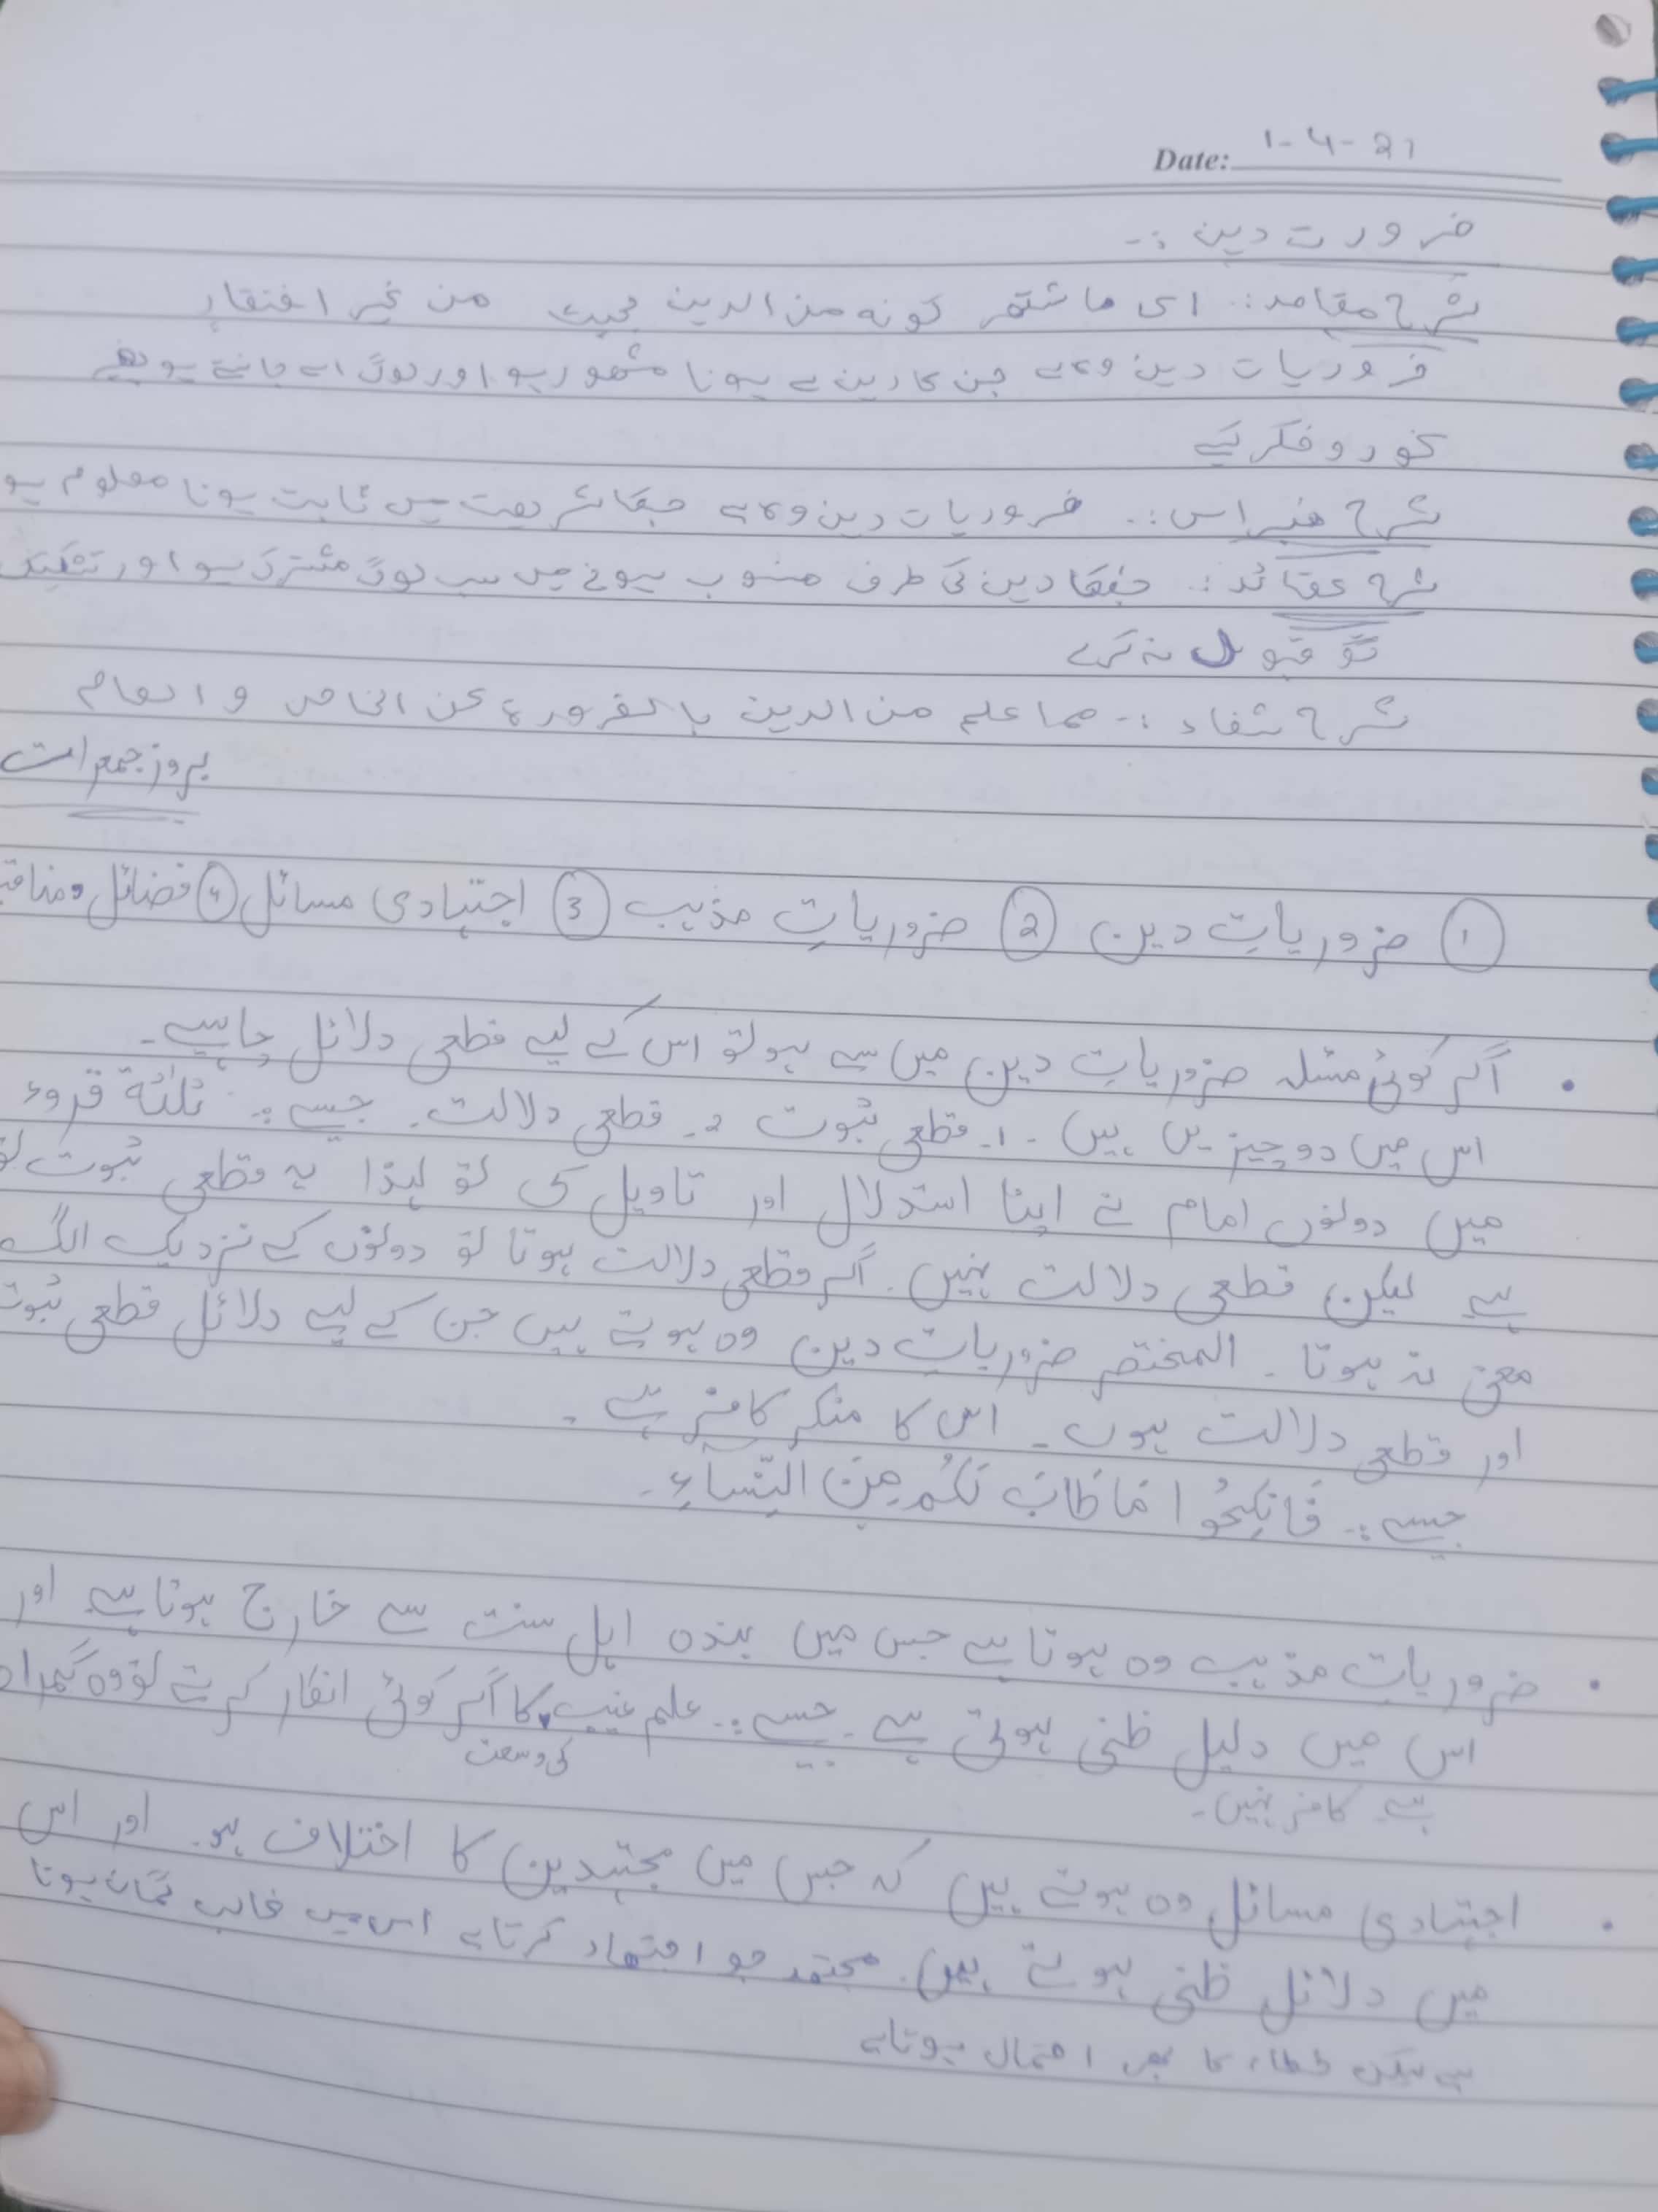 Date: 1-4-21
ضرورت دین :-
شرح مقاصد :. ای ما شتھر کونہ من الدین بحیث من غیر افتقار
ضروریات دین وہ ہے جن کا دین سے ہونا مشھور ہو اور لوگ اسے جانتے ہو بغیر
غور و فکر کیے
شرح نبراس :. ضروریات دین وہ ہے جسکا شریعت میں ثابت ہونا معلوم ہو
شرح عقائد :. جسکا دین کی طرف منسوب ہونے میں سب لوگ مشترک ہو اور تشکیک
کو قبول نہ کرے
شرح شفاء :- مما علم من الدین بالضرورۃ عن الخاص و العام
بروز جمعرات
① ضروریاتِ دین ② ضروریاتِ مذہب ③ اجتہادی مسائل ④ فضائل و مناقب
• اگر کوئی مسئلہ ضروریاتِ دین میں سے ہو تو اس کے لیے قطعی دلائل چاہیے۔
اس میں دو چیزیں ہیں ۔ 1۔ قطعی ثبوت 2۔ قطعی دلالت۔ جیسے :۔ ثلٰثۃ قروء
میں دونوں امام نے اپنا استدلال اور تاویل کی تو لہذا یہ قطعی ثبوت تو
ہے لیکن قطعی دلالت نہیں۔ اگر قطعی دلالت ہوتا تو دونوں کے نزدیک الگ
معنی نہ ہوتا ۔ المختصر ضروریاتِ دین وہ ہوتے ہیں جن کے لیے دلائل قطعی ثبوت
اور قطعی دلالت ہوں۔ اس کا منکر کافر ہے ۔
جیسے :۔ فَانْكِحُوْا مَا طَابَ لَكُمْ مِنَ النِّسَآءِ ۔
• ضروریاتِ مذہب وہ ہوتا ہے جس میں بندہ اہل سنت سے خارج ہوتا ہے اور
اس میں دلیل ظنی ہوتی ہے ۔ جیسے :۔ علم غیب کا اگر کوئی انکار کرتے تو وہ گمراہ
کی وسعت
ہے۔ کافر نہیں۔
• اجتہادی مسائل وہ ہوتے ہیں کہ جس میں مجتہدین کا اختلاف ہو۔ اور اس
میں دلائل ظنی ہوتے ہیں۔ مجتھد جو اجتھاد کرتا ہے اس میں غالب گمان ہوتا
ہے لیکن خطاء کا بھی احتمال ہوتا ہے